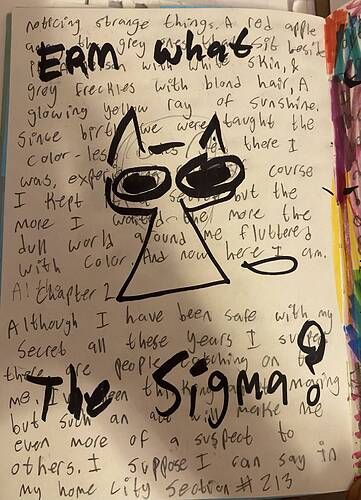 noticing strange things. A red apple
the grey sit beside
ERM what
skin, &
grey freckles with blond hair, A
glowing yellow ray of sunshine.
Since birth we were taught the
color-less there I
was, course
I kept but the
more I wanted the more the
dull world around me fluttered
with color. And now here I am.
Chapter 2
Although I have been safe with my
Secret all these years I
there are people catching on to
The Sigma?
me. I've been
but such an act will make me
even more of a suspect to
others. I suppose I can say in
my home City Section #213